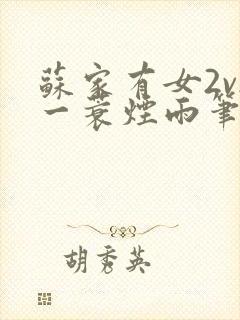 蘇家有女2v
一蓑煙雨筆
胡秀英